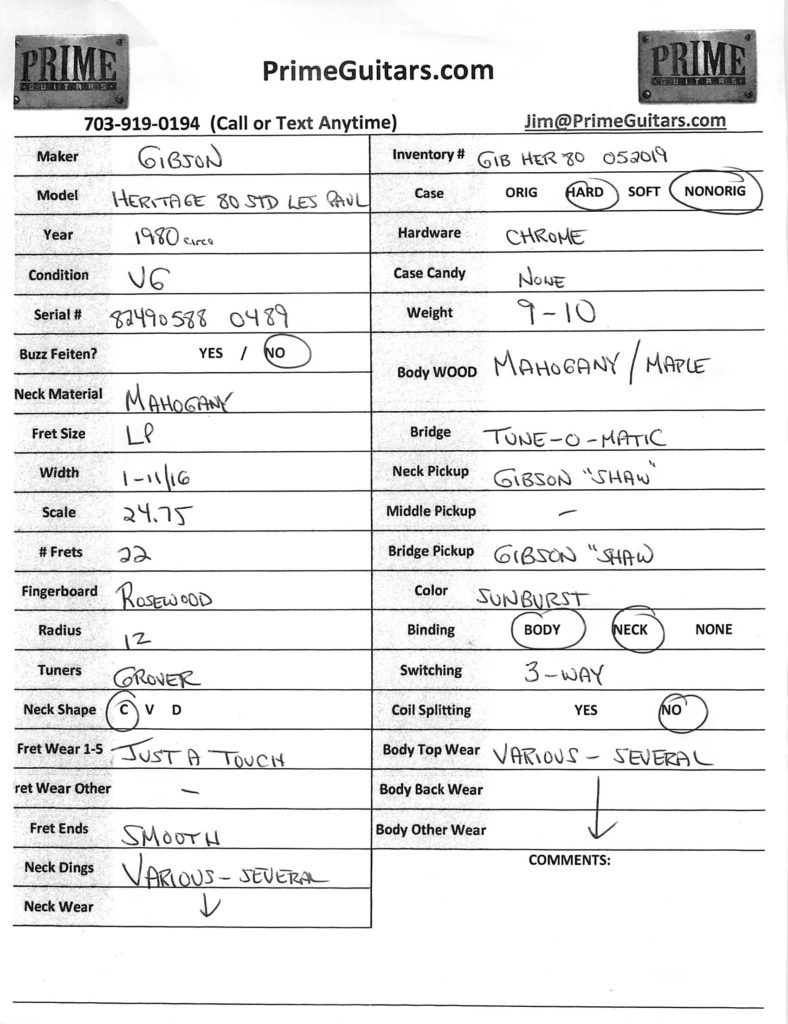 PRIME
GUITARS
PrimeGuitars.com
PRIME
GUITARS
703-919-0194 (Call or Text Anytime)
Jim@PrimeGuitars.com
Maker GIBSON
Model HERITAGE 80 STD LES PAUL
Year 1980 circa
Condition VG
Serial # 82490588 0489
Buzz Feiten? YES / NO
Neck Material MAHOGANY
Fret Size LP
Width 1-11/16
Scale 24.75
# Frets 22
Fingerboard ROSEWOOD
Radius 12
Tuners GROVER
Neck Shape C V D
Fret Wear 1-5 JUST A TOUCH
ret Wear Other –
Fret Ends SMOOTH
Neck Dings VARIOUS – SEVERAL
Neck Wear ↓
Inventory # GIB HER 80 052019
Case ORIG HARD SOFT NONORIG
Hardware CHROME
Case Candy NONE
Weight 9-10
Body WOOD MAHOGANY / MAPLE
Bridge TUNE-O-MATIC
Neck Pickup GIBSON "SHAW"
Middle Pickup –
Bridge Pickup GIBSON "SHAW
Color SUNBURST
Binding BODY NECK NONE
Switching 3-WAY
Coil Splitting YES NO
Body Top Wear VARIOUS – SEVERAL
Body Back Wear ↓
Body Other Wear
COMMENTS: